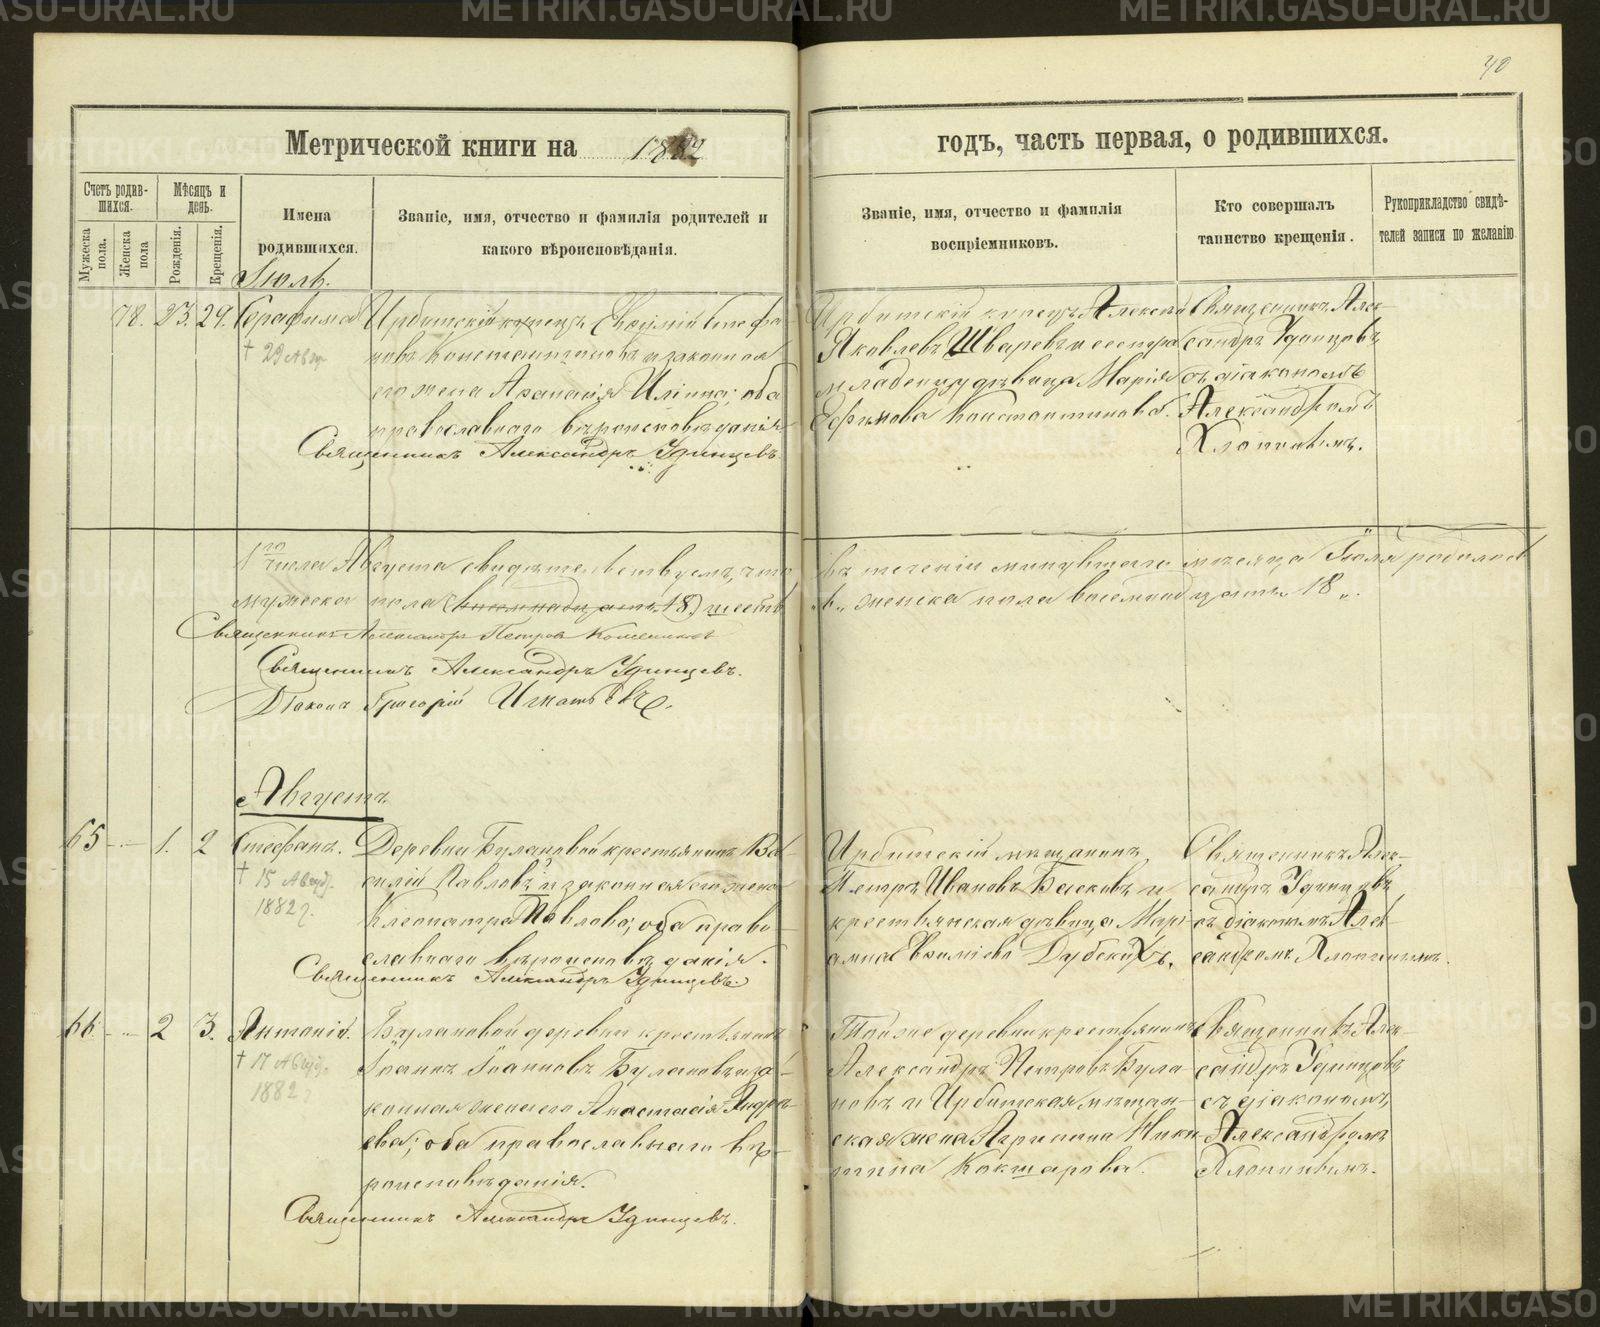 40
Метрической книги на 1882 годъ, часть первая, о родившихся.
Счетъ родив-
шихся.
Мужеска
пола.
Женска
пола
Мѣсяцъ и
день.
Рожденія.
Крещенія.
Имена
родившихся.
Званіе, имя, отчество и фамилія родителей и
какого вѣроисповѣданія.
Званіе, имя, отчество и фамилія
воспріемниковъ.
Кто совершалъ
таинство крещенія.
Рукоприкладство свидѣ-
телей записи по желанію
Іюль.
78. 23. 29. Серафима
† 29 Авг
Ирбитскій купецъ Евѳимій Стефа-
новъ Константиновъ и законная
его жена Аѳанасія Ильина; оба
православнаго вѣроисповѣданія
Священникъ Александръ Удинцевъ.
Ирбитскій купецъ Алексѣй
Яковлевъ Шваревъ и сестра
младенца дѣвица Марія
Ефимова Константинова.
Священникъ Алек-
сандръ Удинцовъ
съ діакономъ
Александромъ
Хлопинымъ.
1го числа Августа свидѣтельствуемъ, что въ теченіи минувшаго мѣсяца Іюля родилось
мужеска пола (восемнадцать 18) шесть „6„ женска пола восемнадцать „18„.
Священникъ Александръ Петровъ
Священникъ Александръ Удинцевъ.
Діаконъ Григорій Игнатьевъ.
Августъ
65 1. 2 Стефанъ.
† 15 Авгу.
1882 г.
Деревни Булановой крестьянинъ Ва-
силій Павловъ и законная его жена
Клеопатра Павлова; оба право-
славнаго вѣроисповѣданія.
Священникъ Александръ Удинцевъ.
Ирбитскій мѣщанинъ
Петръ Ивановъ Басковъ и
крестьянская дѣвица Марі-
амна Евѳиміева Дубскихъ.
Священникъ Алек-
сандръ Удинцовъ
съ діакономъ Алек-
сандромъ Хлопинымъ.
66. 2 3. Антоній.
† 17 Авгу.
1882 г
Булановой деревни крестьянинъ
Іоаннъ Іоанновъ Булановъ и за-
конная жена его Анастасія Андре-
ева; оба православнаго вѣ-
роисповѣданія.
Священникъ Александръ Удинцевъ.
Той же деревни крестьянинъ
Александръ Петровъ Була-
новъ и Ирбитская мѣщан-
ская жена Агрипина Ники-
тина Кокшарова.
Священникъ Алек-
сандръ Удинцовъ
съ діакономъ
Александромъ
Хлопинымъ.
METRIKI.GASO-URAL.RU